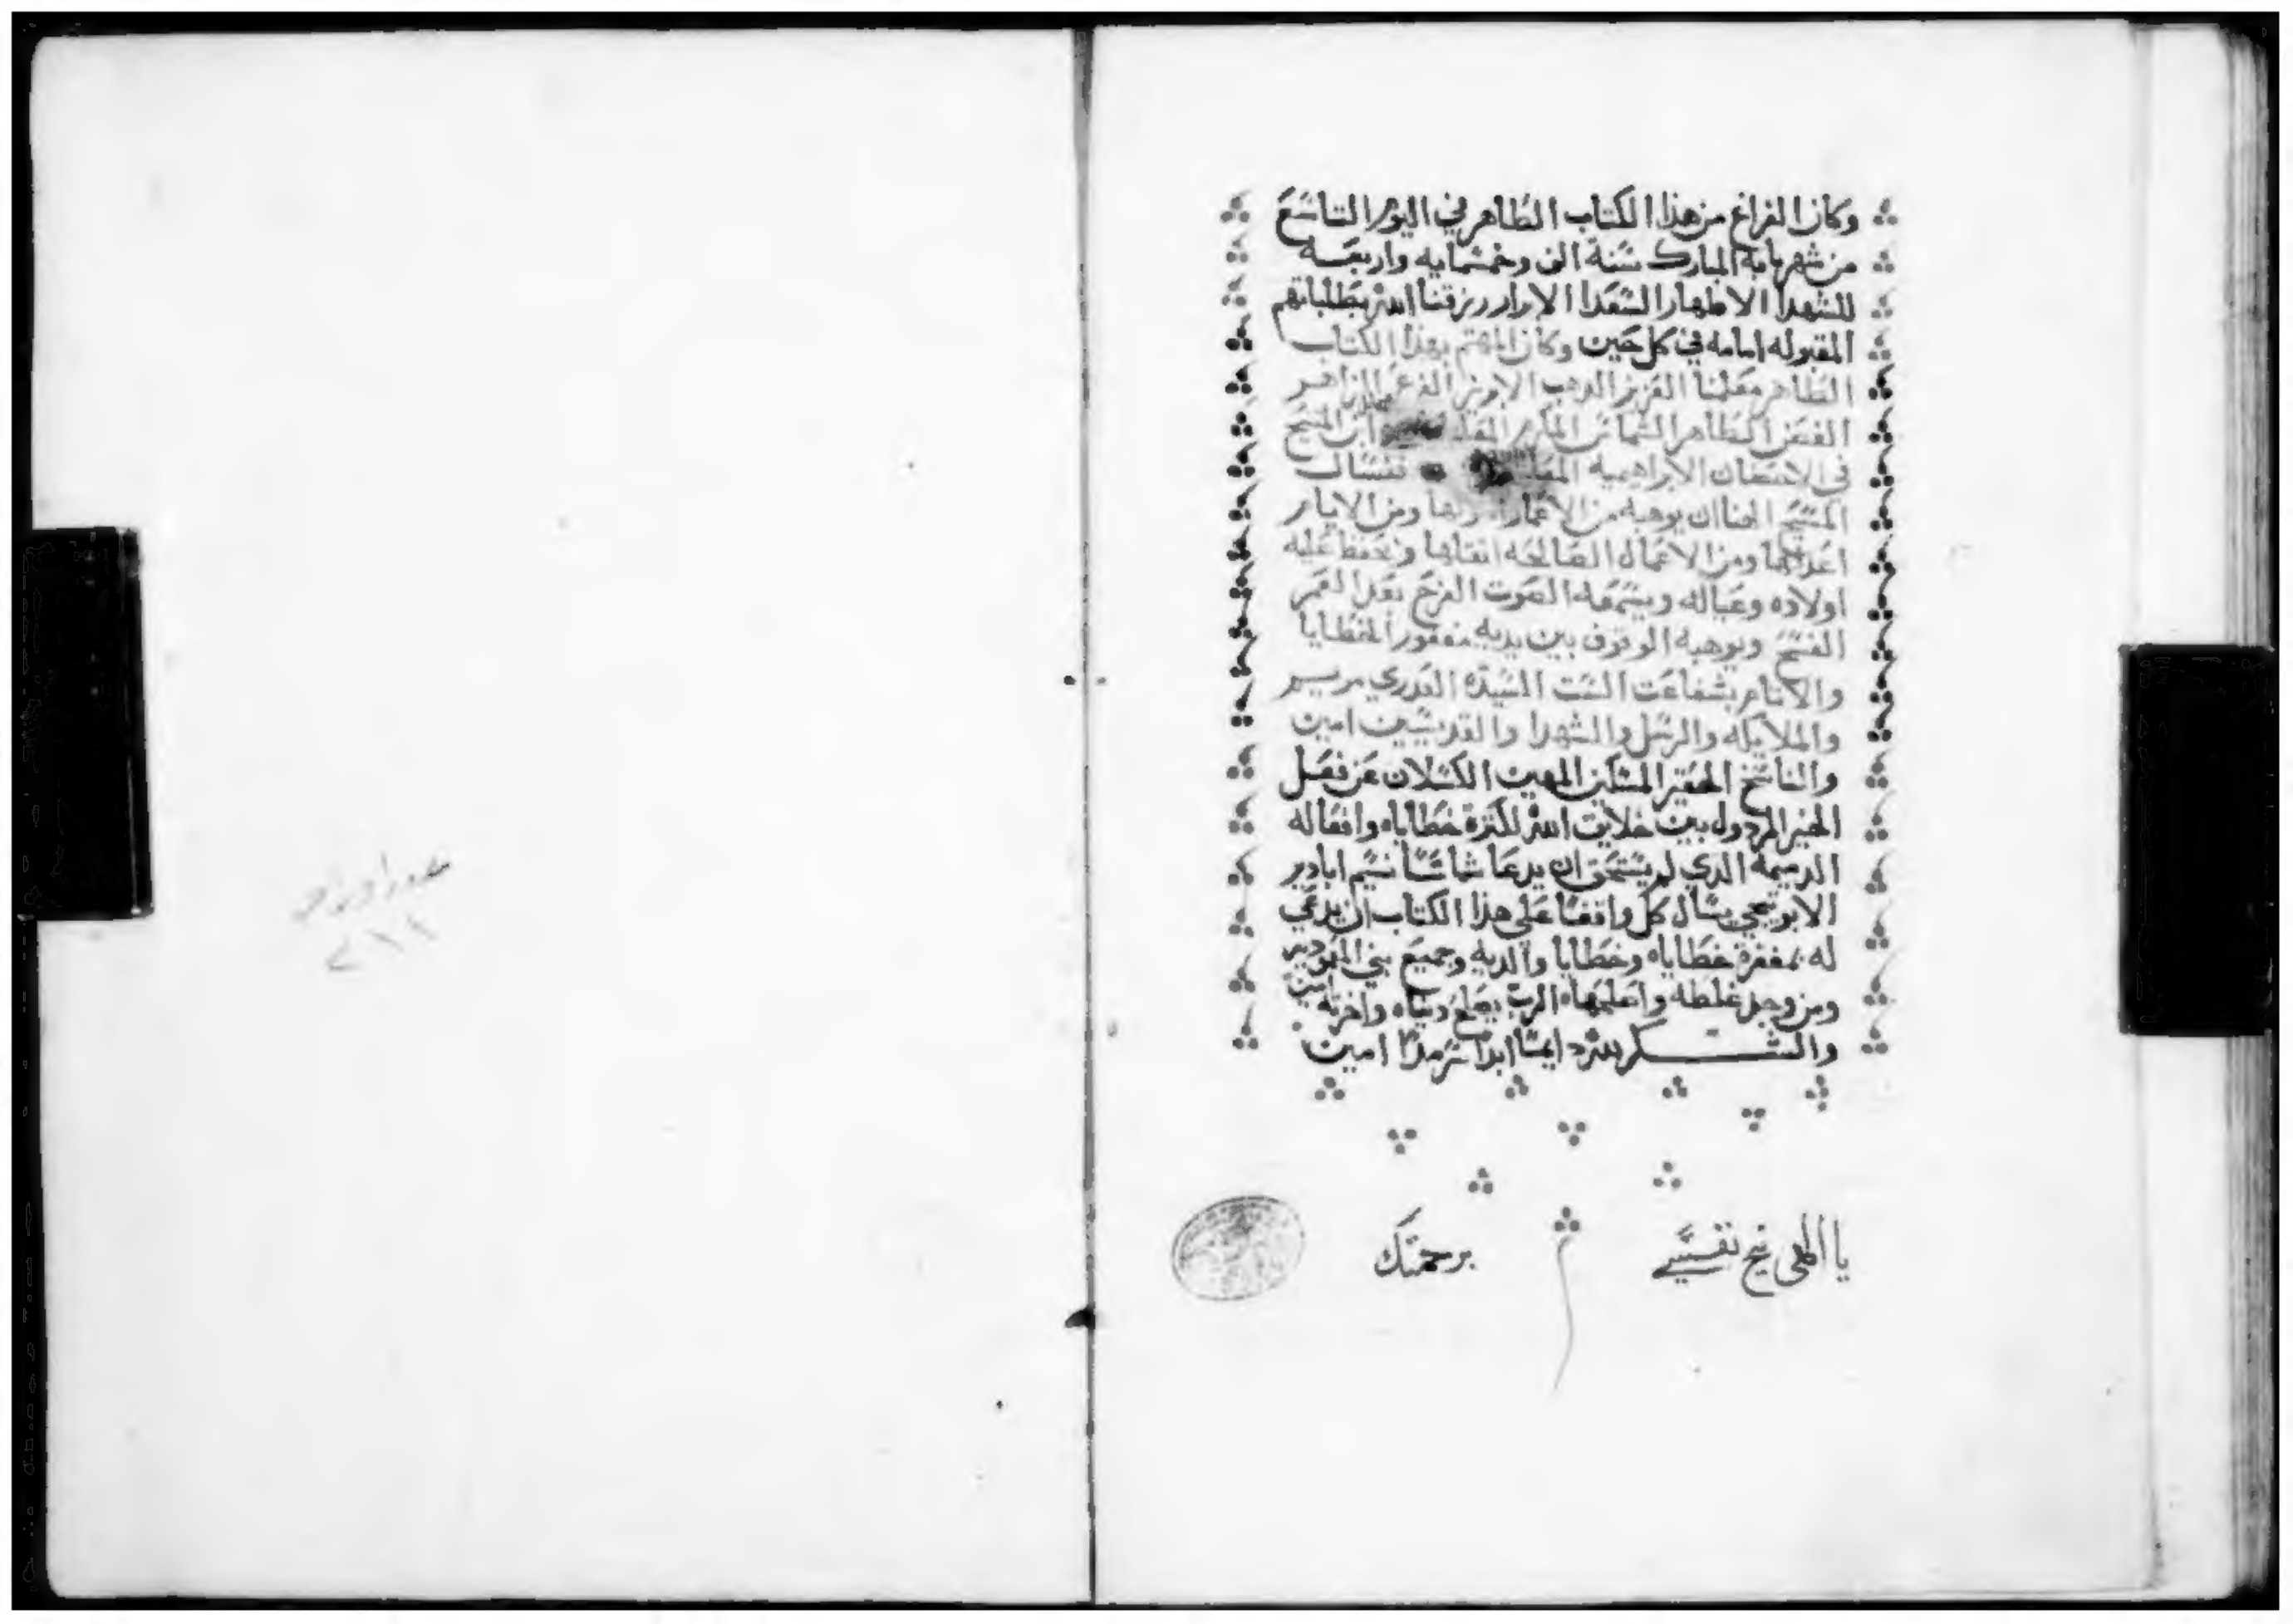 وكان الفراغ من هذا الكتاب الطاهر في اليوم التاسع
من شهر بابه المبارك سنة الف وخمسمايه واربعه
للشهدا الاطهار السعدا الابرار رزقنا الله بطلباتهم
المقبوله امامه في كل حين وكان المهتم بهذا الكتاب
الطاهر معلمنا العزيز الدهب الابريز الفرع الزاهر
الغصن الطاهر الشماس المكرم المعلم ابن المتنيح
في الاحضان الابراهيميه المعلم فنسال
المسيح الهنا ان يوهبه من الاعمار ومن الايام
اعدلها ومن الاعمال الصالحه اتقاها ويحفظ عليه
اولاده وعياله ويسمعه الصوت الفرح بعد العمر
الفسيح ويوهبه الوقوف بين يديه مغفور الخطايا
والاتام بشفاعت الست السيده العدري مريم
والملايكه والرسل والشهدا والقديسين امين
والناسخ الحقير المسكين المهين الكسلان عن فعل
الخير المردول بين خلايق الله لكترة خطاياه وافعاله
الدميمه الدي لم يستحق ان يدعا شماسًا نسيم ابادير
الابوتيجي يسال كل واقفًا على هذا الكتاب ان يدعي
له بمغفرة خطاياه وخطايا والديه وجميع بني المعموديه
ومن وجد غلطه واصلحها الرب يصلح دنياه واخرته امين
والشكر لله دايمًا ابدًا سرمدًا امين
يا الهي نيح نفسي برحمتك